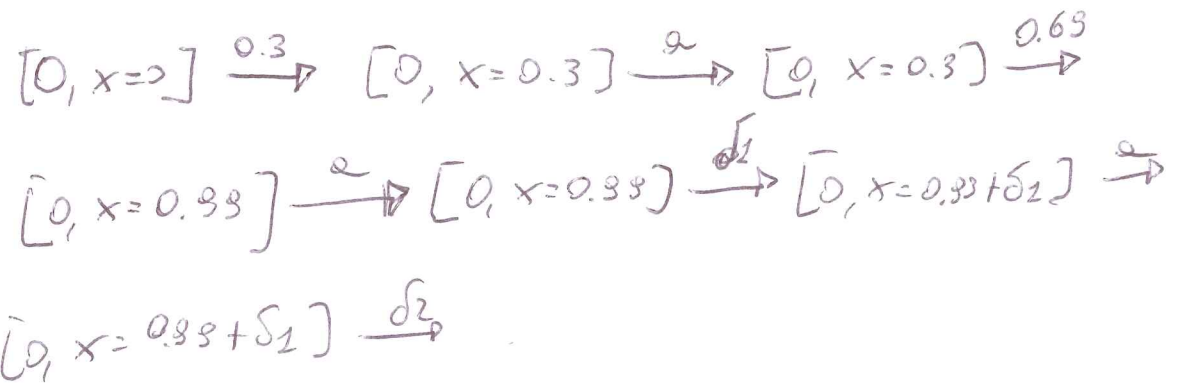 [0, x=0] 0.3→ [0, x=0.3] a→ [0, x=0.3] 0.69→
[0, x=0.99] a→ [0, x=0.99] δ1→ [0, x=0.99+δ1] a→
[0, x=0.99+δ1] δ2→